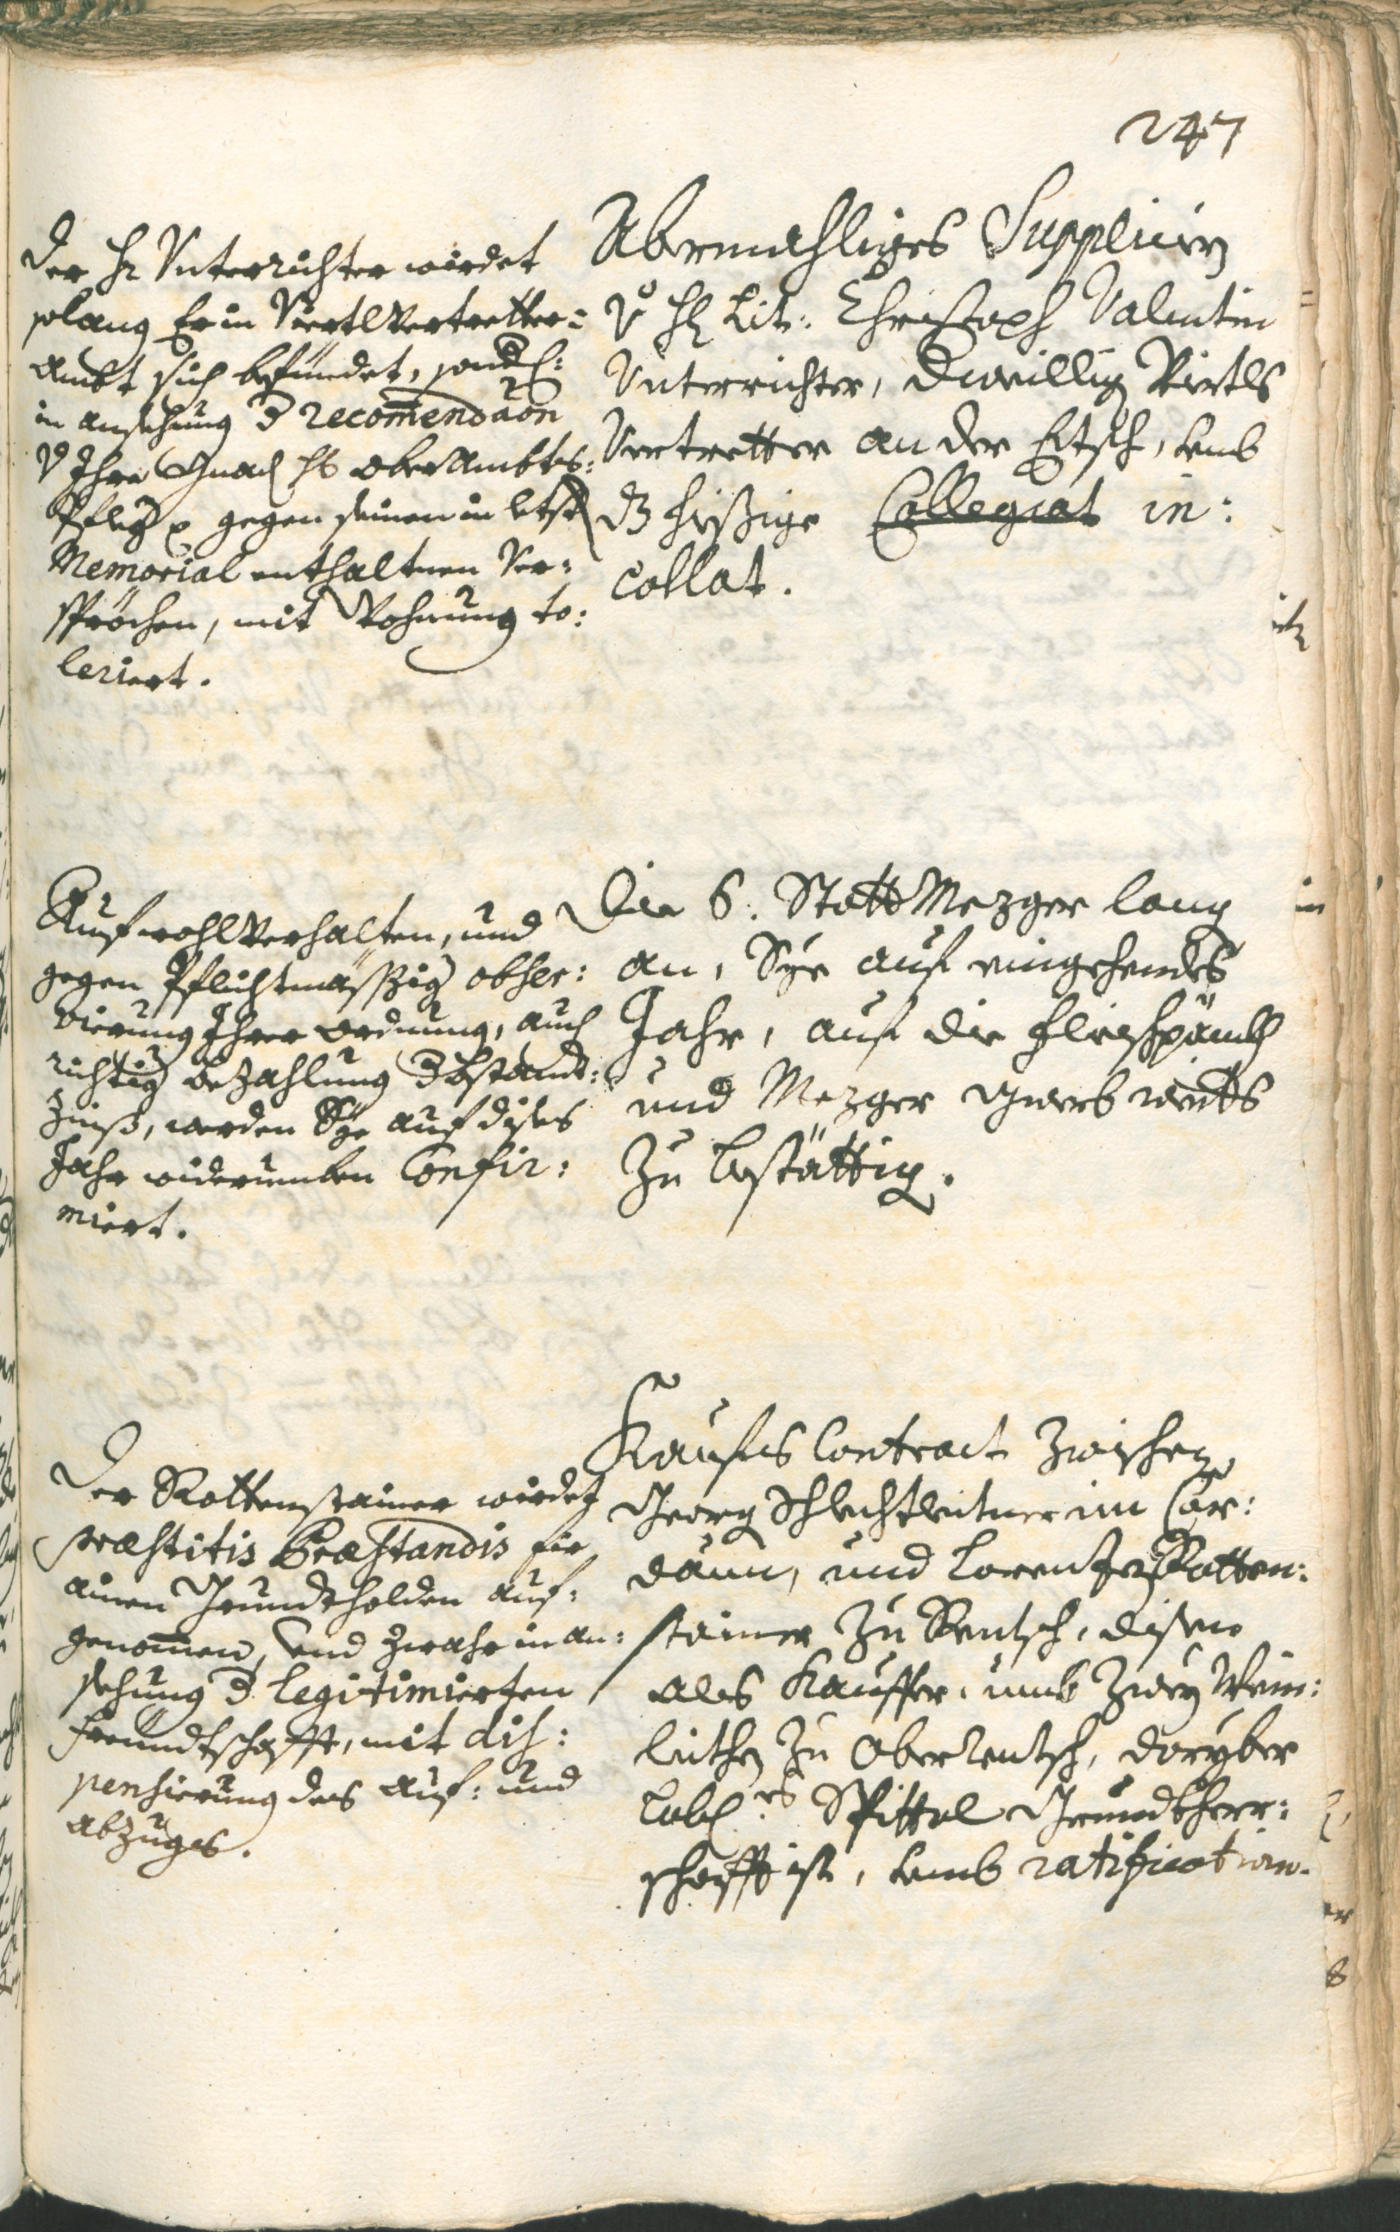 247
Der H: Vnterrichter wirdet
solang Er in Viertlvertretter=
Ambt sich befündet, sonderl:
in ansechung d recomendaon
v Ihro Gnad H: oberAmbts:
Pfleg gegen seinen in letst
Memorial enthaltnen Ver:
spröchen, mit Wohnung to:
leriert.
Abermahliges Supplicirn
v H: Lit: Christoph Valentin
Vnterrichter, Viertls
Vertretter an der Etsch, vmb
dz hießige Collegiat in:
collat.
Auf wohlVerhalten, und
gegen Pflichtmässig obser:
vierung Ihrer ordnung, auch
richtig bezahlung d bstandt:
Zinß, werden Sye auf dises
Jahr widerumben Confir:
miert.
Die 6. Statt Mezger lang
an, Sye auf eingehendes
Jahr, auf die Fleischpänkh
und Mezger
zu bestättig.
Der Rottenstainer wirdet
praestitis Praestandis für
ainen Grundtholden auf:
genomen, vnd zwahr in an:
sechung d legitimierten
Freundtschafft, mit dis:
pensierung des Auf: und
Abzuges.
Kaufs Contract zwischen
Georg Schlechtleitner im Car:
daun, und Lorenz Rotten:
stainer zu Rentsch, disen
als Kauffer, umb zwey Wein:
leithen zu Oberrentsch, dariber
Lobl: Spittal Grundtherr:
schafft ist, vmb ratification.